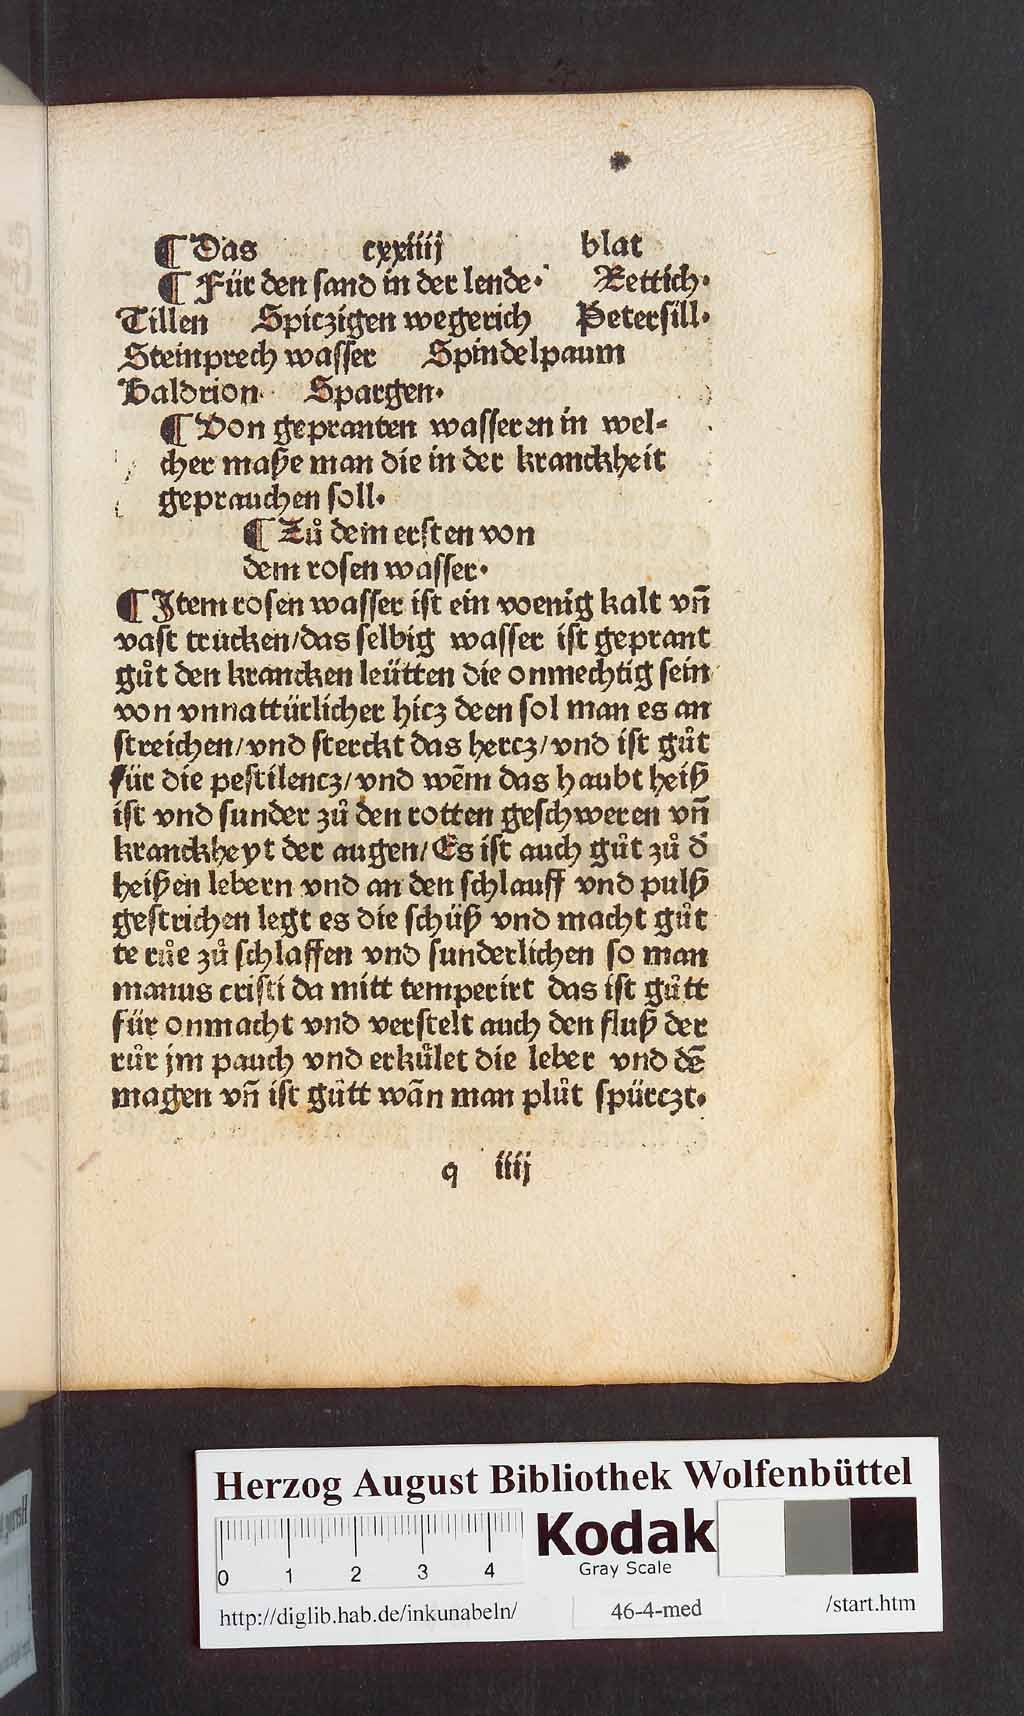 ¶ Das cxxiiij blat
¶ Für den sand in der lende· Rettich·
Tillen Spiczigen wegerich Petersill·
Steinprech wasser Spindelpaum
Baldrion· Spargen·
¶ Von gepranten wasseren in wel-
cher maße man die in der kranckheit
geprauchen soll·
¶ Zů dem ersten von
dem rosen wasser·
¶ Item rosen wasser ist ein voenig kalt vñ
vast trucken/das selbig wasser ist geprant
gůt den krancken leütten die onmechtig sein
von vnnattürlicher hicz deen sol man es an
streichen/vnd sterckt das hercz/vnd ist gůt
für die pestilencz/vnd wem̃ das haubt heiß
ist vnd sunder zů den rotten geschweren vñ
kranckheyt der augen/Es ist auch gůt zů d̕
heißen lebern vnd an den schlauff vnd pulß
gestrichen legt es die schüß vnd macht gůt
te růe zů schlaffen vnd sunderlichen so man
manus cristi da mitt temperirt das ist gůtt
für onmacht vnd verstelt auch den fluß der
růr jm pauch vnd erkůlet die leber vnd dē
magen vñ ist gůtt wān man plůt spürczt·
q iiij
Herzog August Bibliothek Wolfenbüttel
0 1 2 3 4
Kodak
Gray Scale
http://diglib.hab.de/inkunabeln/ 46-4-med /start.htm